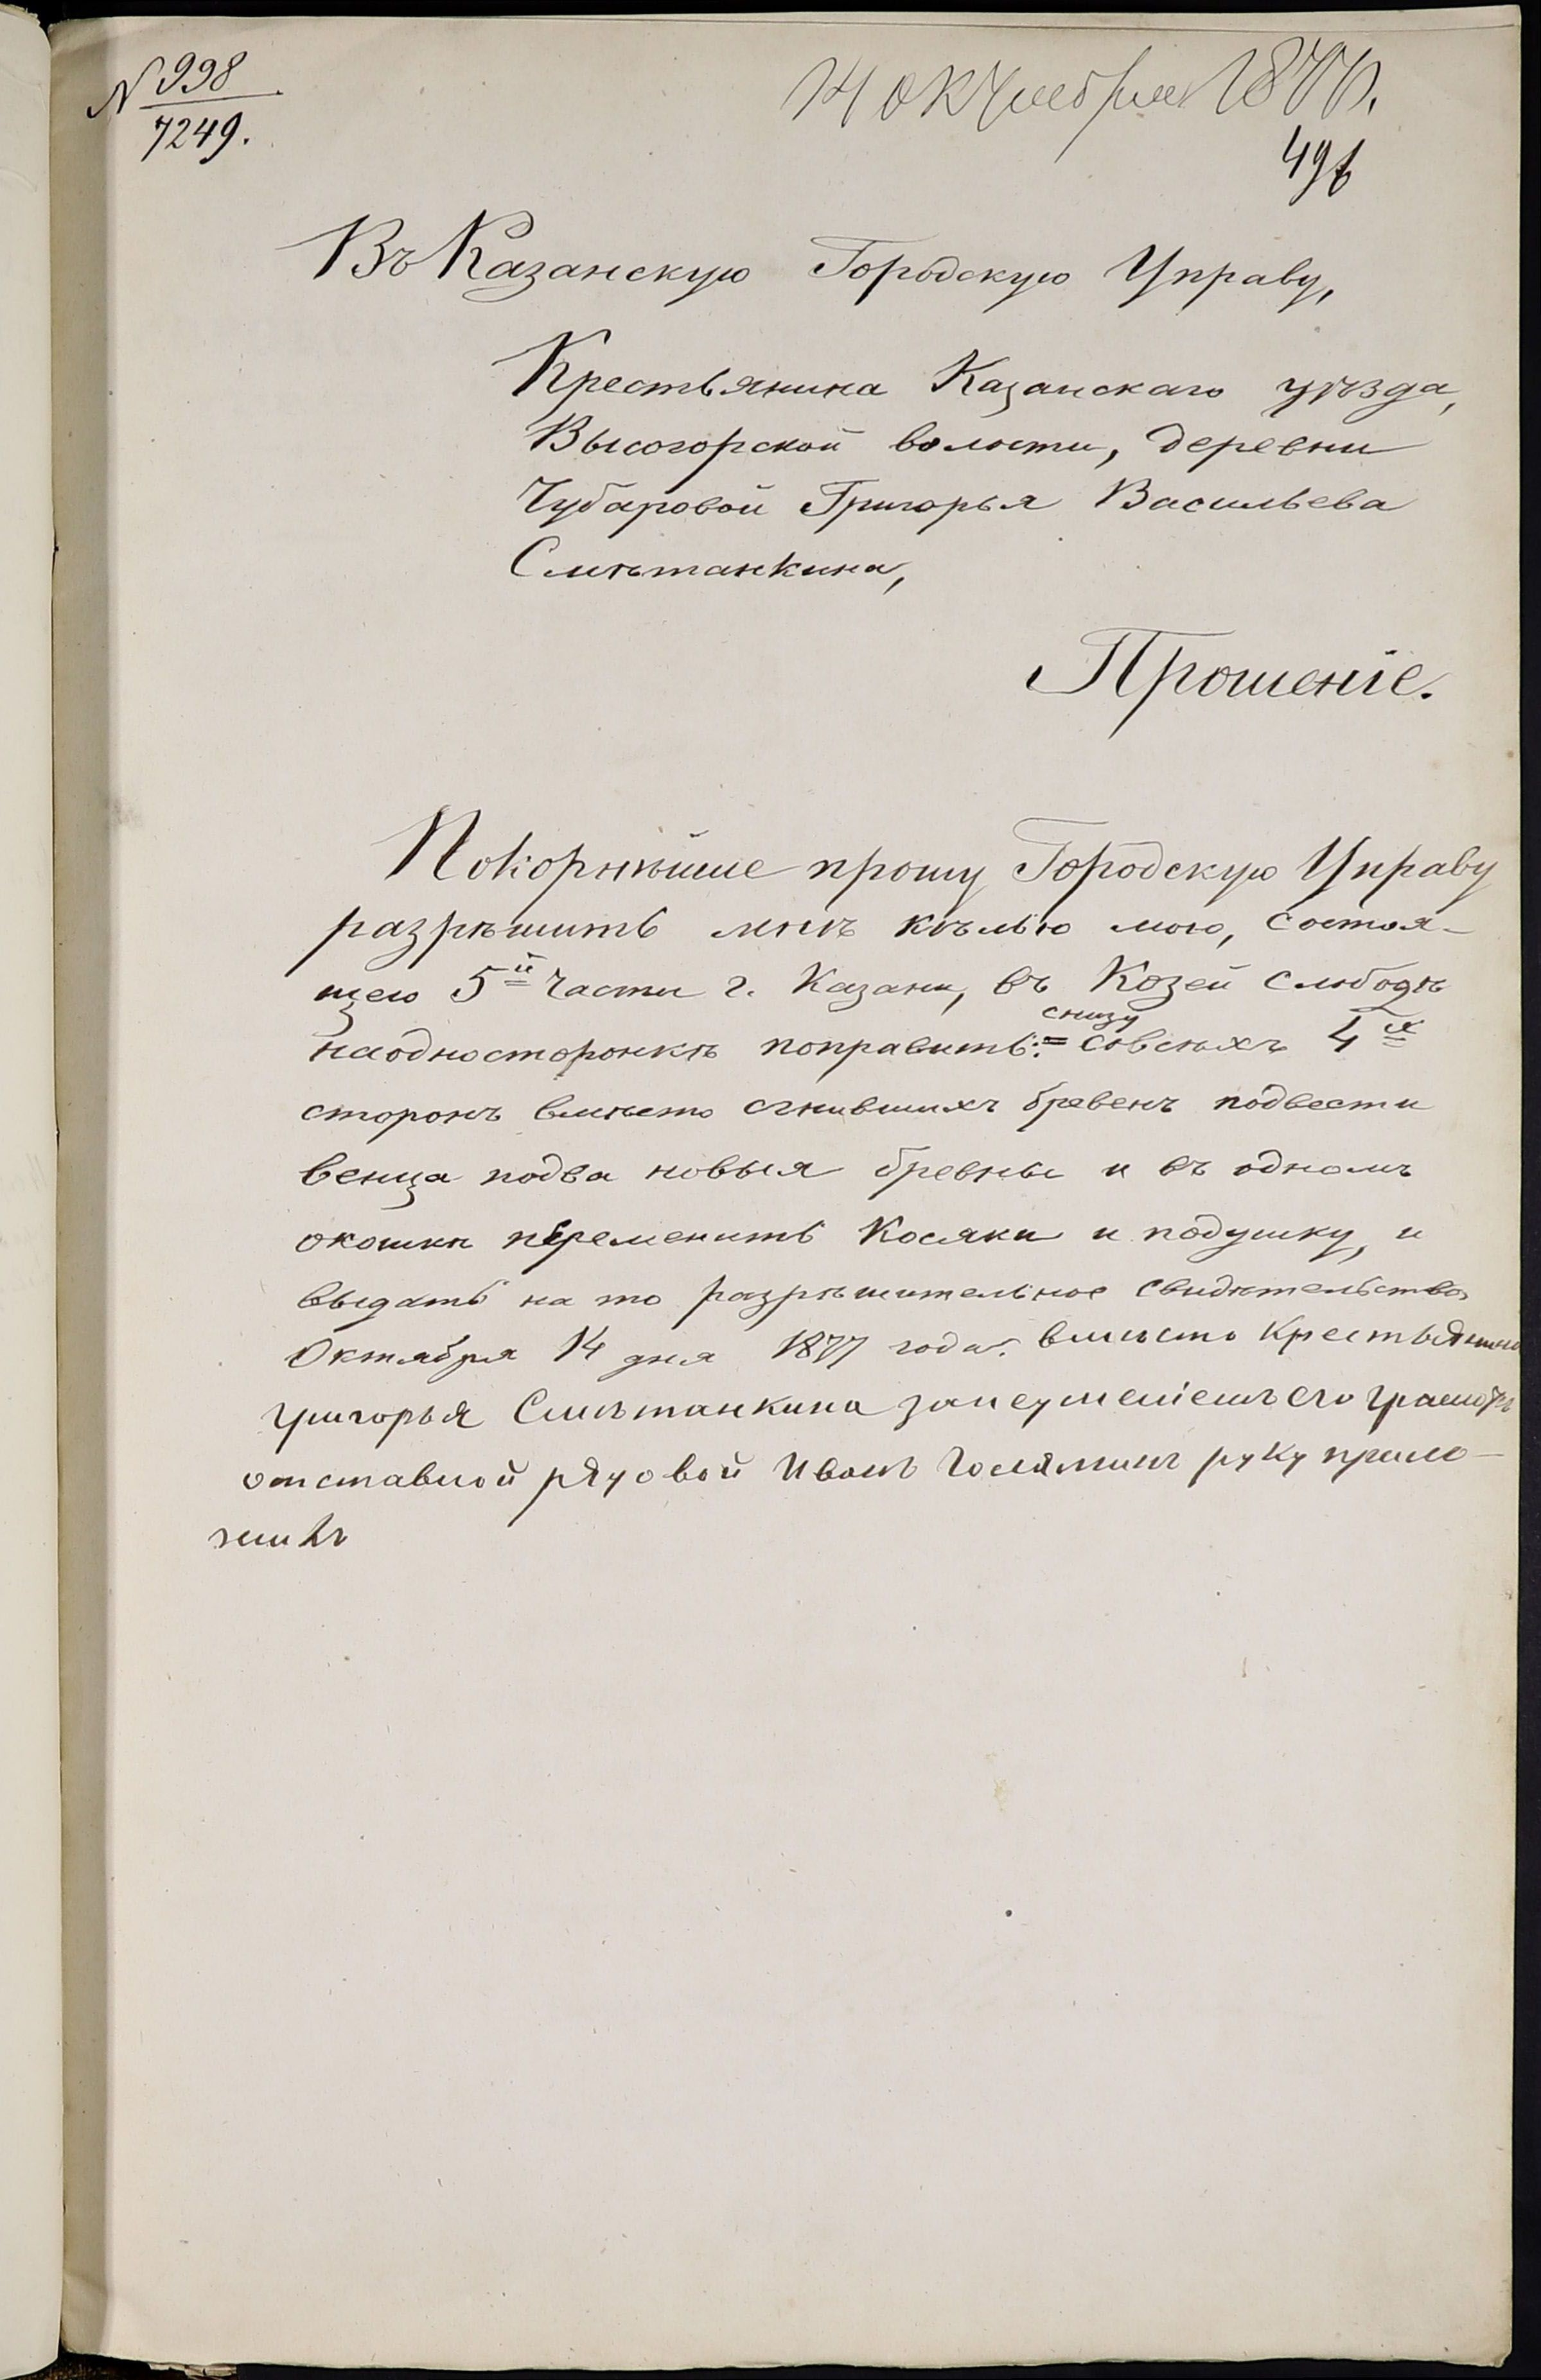 № 998
7249.
14 октября 1877.
496
Въ Казанскую Городскую Управу,
Крестьянина Казанскаго уѣзда,
Высогорской волости, деревни
Чубаровой Григорья Васильева
Смѣтанкина,
Прошеніе.
Покорнѣйше прошу Городскую Управу
разрѣшить мнѣ кѣлью мою, состоя-
щею 5й части г. Казани, въ Козей слободѣ
наодносторонкѣ поправить: = снизу совсѣхъ 4х
сторонъ вмѣсто сгнившихъ бревенъ подвести
венца подва новыя бревны и въ одномъ
окошкѣ переменить косяки и подушку, и
выдать на то разрѣшительное свидѣтельство,
Октября 14 дня 1877 года. вмѣсто Крестьянина
Григорья Смѣтанкина занеуменіемъ его грамотѣ
отставной рядовой Иванъ руку прило-
жилъ